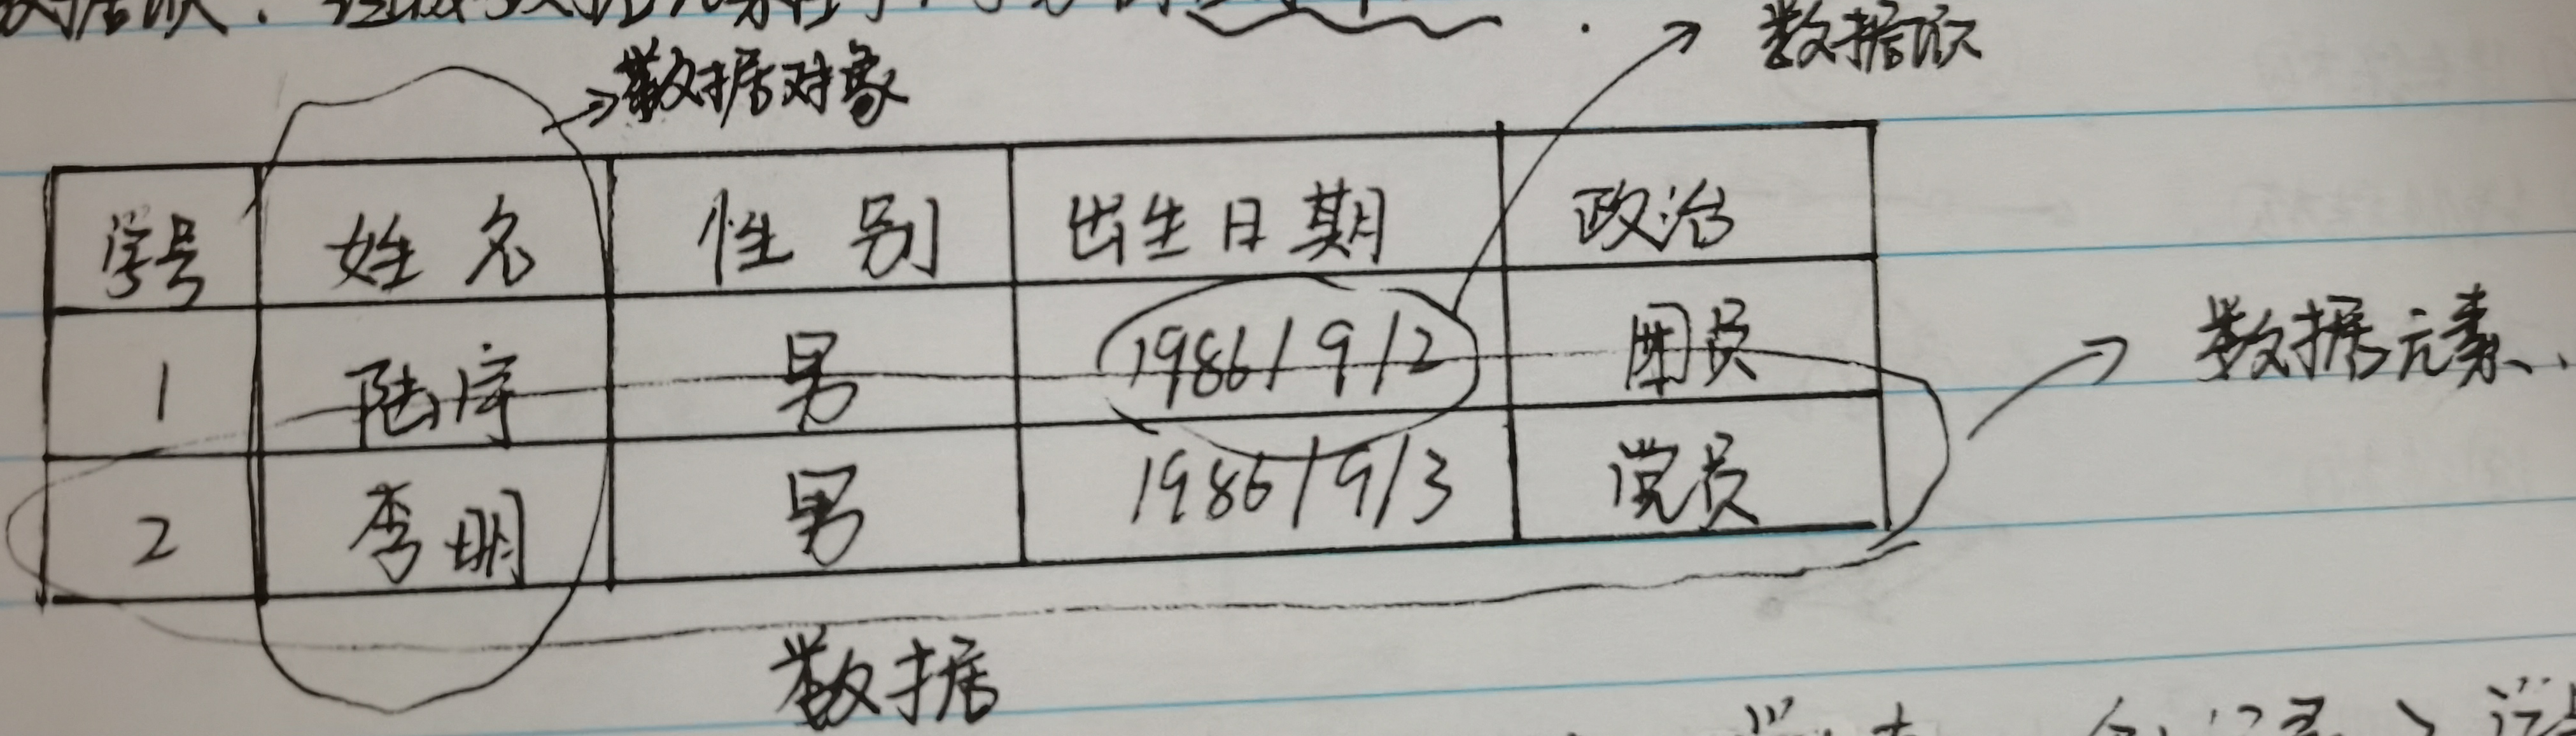 数据项
数据对象
学号 姓名 性别 出生日期 政治
1 男 1986/9/2 团员
2 李明 男 1986/9/3 党员
数据元素
数据